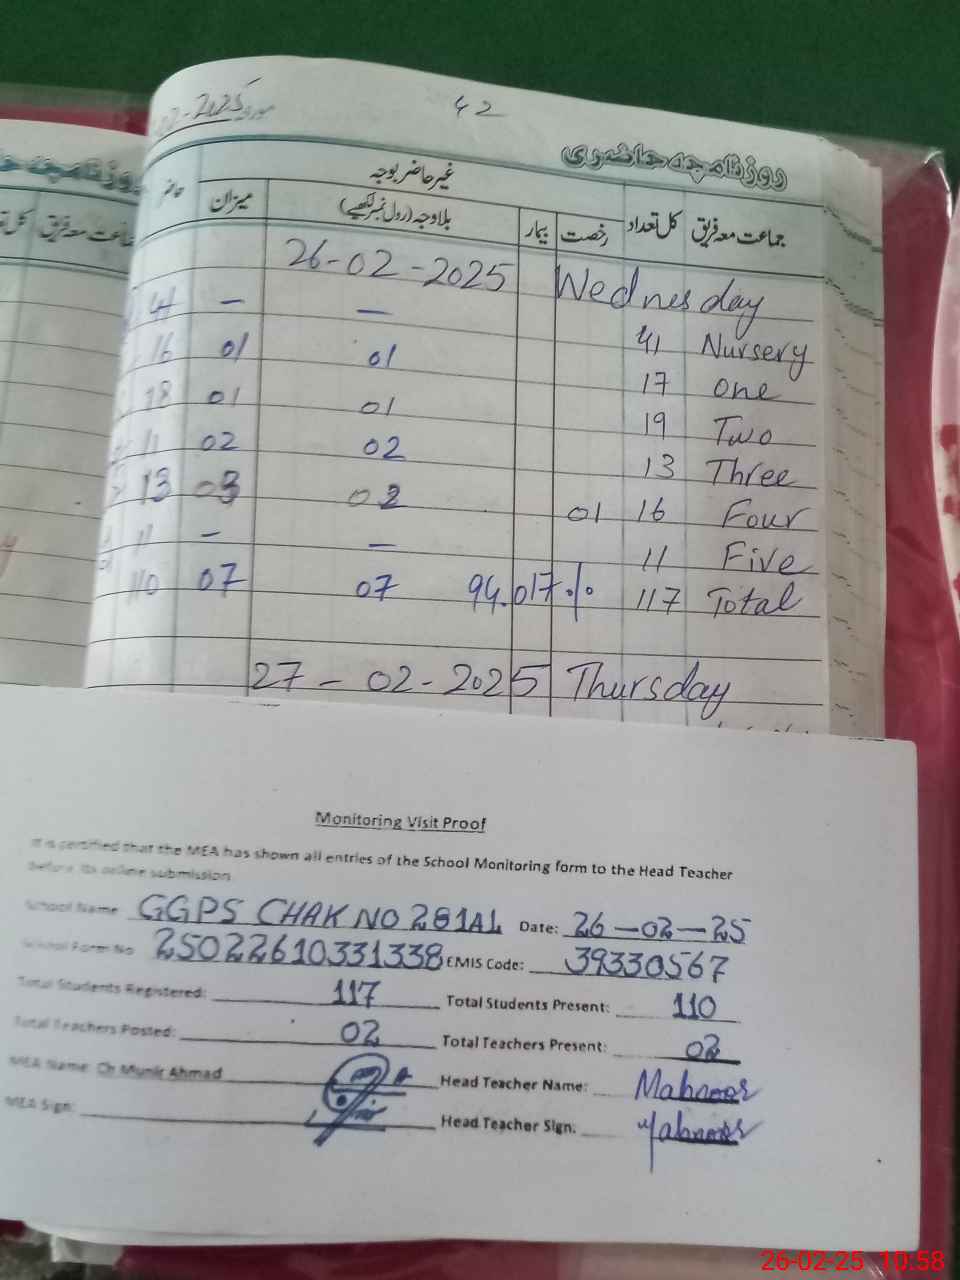 42
روزنامچہ حاضری
جماعت معہ فریق کل تعداد رخصت بیمار غیر حاضر بوجہ بلا وجہ (رول نمبر لکھیے) میزان حاضر
26-02-2025 Wednesday
41 - - 41 Nursery
16 01 01 17 One
18 01 01 19 Two
11 02 02 13 Three
13 03 01 16 Four
11 - - 11 Five
110 07 07 94.017% 117 Total
27-02-2025 Thursday
Monitoring Visit Proof
It is certified that the MEA has shown all entries of the School Monitoring form to the Head Teacher
before its online submission.
School Name GGPS CHAK NO 281AL Date: 26-02-25
School Form No 25022610331338 EMIS Code: 39330567
Total Students Registered: 117 Total Students Present: 110
Total Teachers Posted: 02 Total Teachers Present: 02
MEA Name: Ch Munir Ahmad Head Teacher Name: Mahnoor
MEA Sign: Head Teacher Sign: Mahnoor
26-02-25 10:58